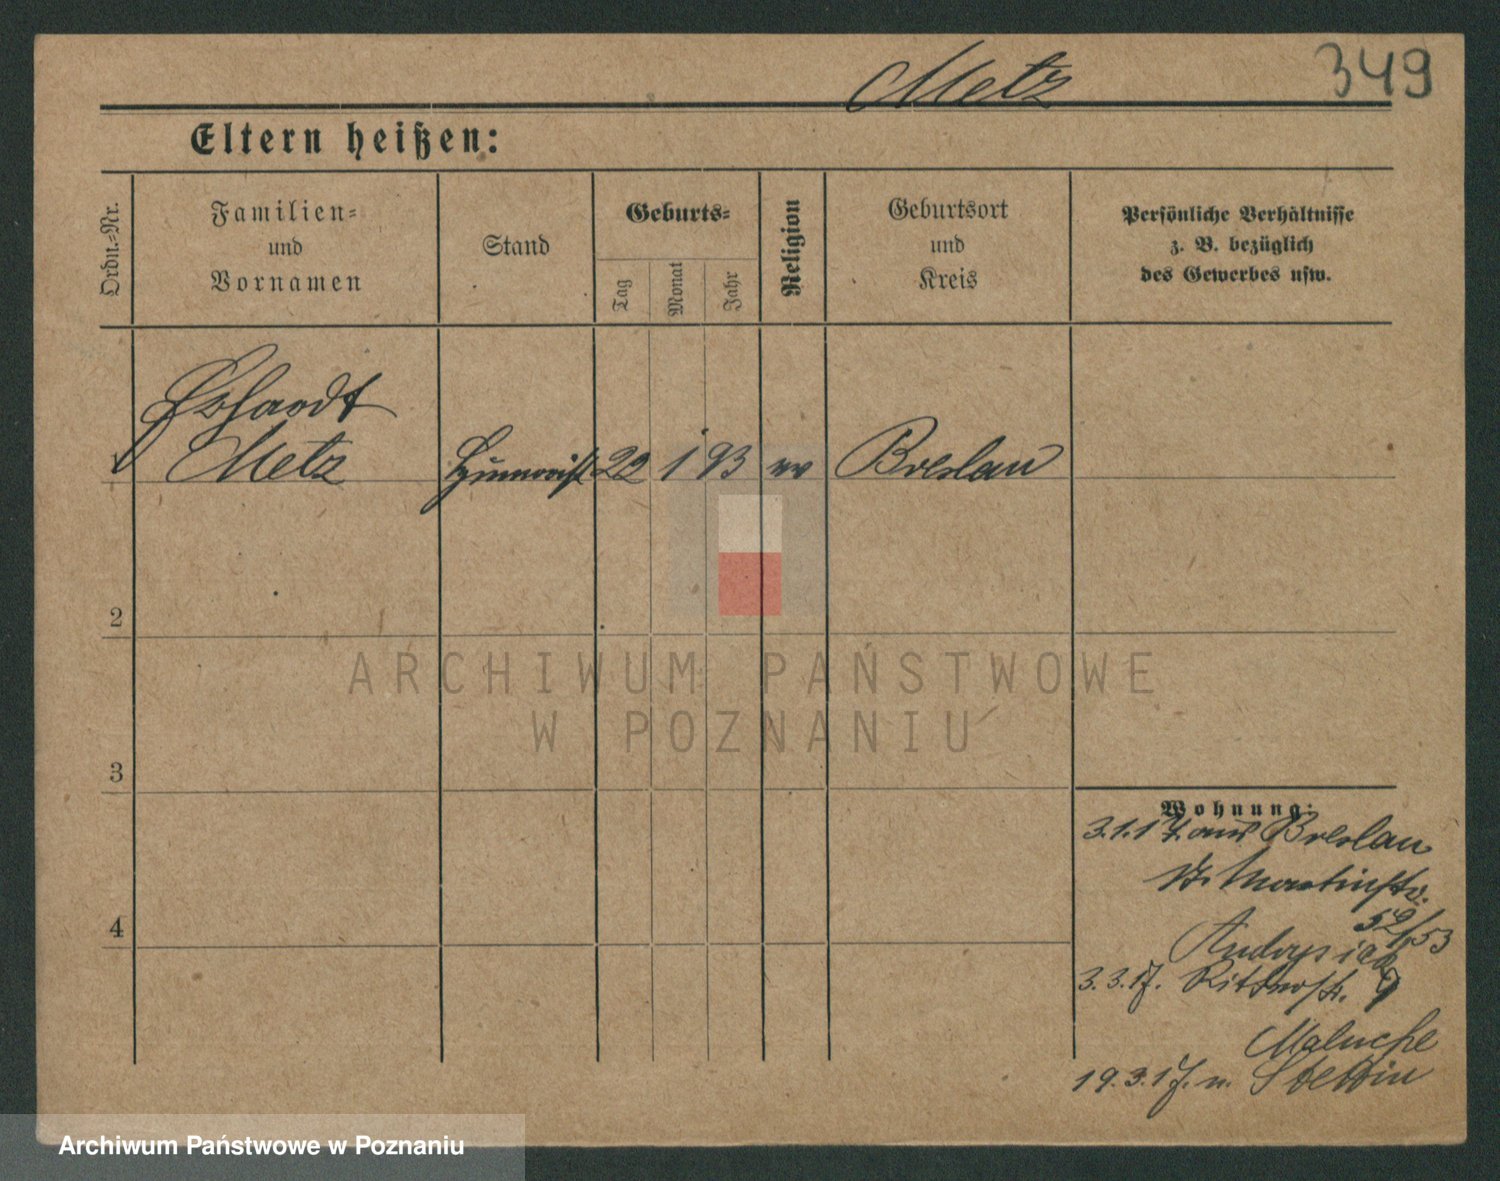 Metz
349
Eltern heißen:
Ordn.=Nr.
Familien=
und
Vornamen
Stand
Geburts=
Tag
Monat
Jahr
Religion
Geburtsort
und
Kreis
Persönliche Verhältnisse
z. B. bezüglich
des Gewerbes usw.
Erhardt
Metz
Humorist 22 1 93 ev Breslau
2
3
4
Wohnung:
3.1.17. aus Breslau
St. Martinstr.
52/53
3.3.17. Ritterstr. 9
19.3.17. n. Stettin
ARCHIWUM PAŃSTWOWE
W POZNANIU
Archiwum Państwowe w Poznaniu